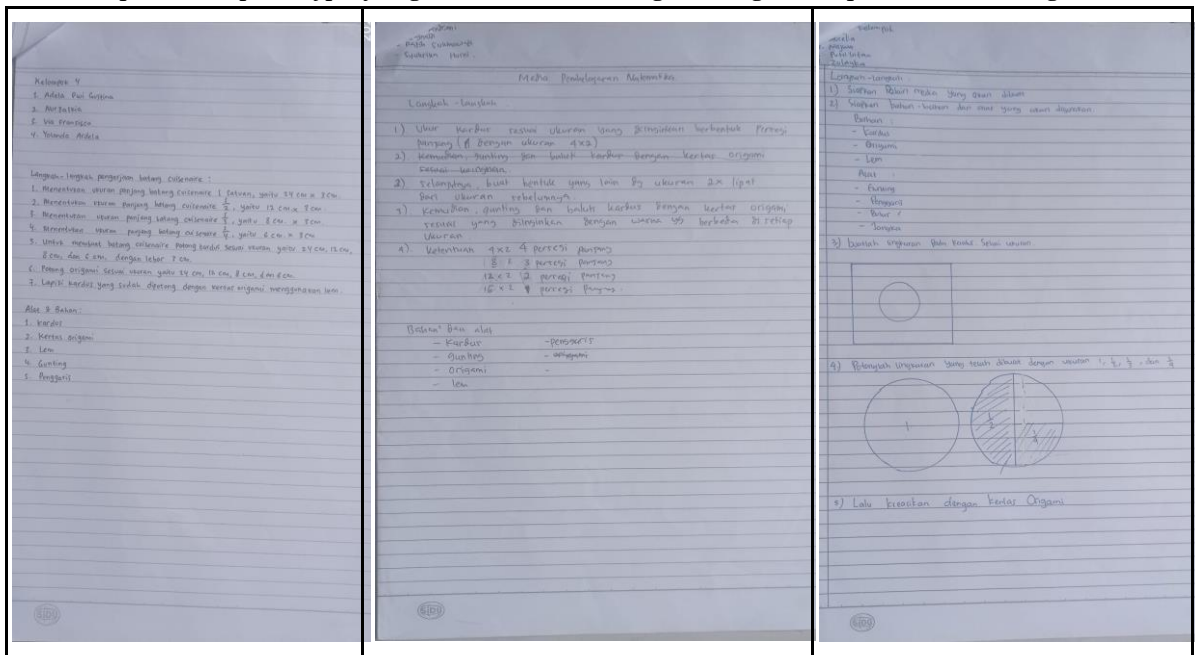 Kelompok 4
1. Adela Puri
2.
3. Via Francisca
4. Yolanda Ardela
Langkah-langkah pengerjaan batang cuisenaire :
1. Menentukan ukuran panjang batang cuisenaire 1 satuan, yaitu 24 cm x 3 cm.
2. Menentukan ukuran panjang batang cuisenaire 1/2, yaitu 12 cm x 3 cm.
3. Menentukan ukuran panjang batang cuisenaire 1/3, yaitu 8 cm x 3 cm.
4. Menentukan ukuran panjang batang cuisenaire 1/4, yaitu 6 cm x 3 cm.
5. Untuk membuat batang cuisenaire potong kardus sesuai ukuran yaitu 24 cm, 12 cm,
8 cm, dan 6 cm, dengan lebar 3 cm.
6. Potong origami sesuai ukuran yaitu 24 cm, 12 cm, 8 cm, dan 6 cm.
7. Lapisi kardus yang sudah dipotong dengan kertas origami menggunakan lem.
Alat & Bahan :
1. Kardus
2. Kertas origami
3. Lem
4. Gunting
5. Penggaris
SIDU
Media Pembelajaran Matematika
Langkah-langkah
1) Ukur kardus sesuai ukuran yang diinginkan berbentuk persegi
panjang ( dengan ukuran 4x2)
2) Kemudian, gunting dan baluti kardus dengan kertas origami
3) Selanjutnya, buat bentuk yang lain dg ukuran 2x lipat
dari ukuran sebelumnya.
3) Kemudian, gunting dan baluti kardus dengan kertas origami
sesuai yang diinginkan dengan warna yg berbeda di setiap
ukuran
4). Ketentuan 4x2 4 persegi panjang
3 persegi panjang
12 x 2 2 persegi panjang
16 x 2 persegi panjang.
Bahan dan alat
- Kardus - penggaris
- gunting
- origami -
- lem
SIDU
Kelompok
Langkah-langkah :
1) Siapkan media yang akan dibuat
2) Siapkan bahan-bahan dan alat yang akan digunakan
Bahan :
- Kardus
- Origami
- Lem
Alat :
- Gunting
- Penggaris
-
- Jangka
3) buatlah lingkaran pada kardus sesuai ukuran.
4) Potonglah lingkaran yang telah dibuat dengan ukuran 1, 1/2, 1/3, dan 1/4
1
1/2
1/4
5) Lalu kreasikan dengan kertas Origami
SIDU